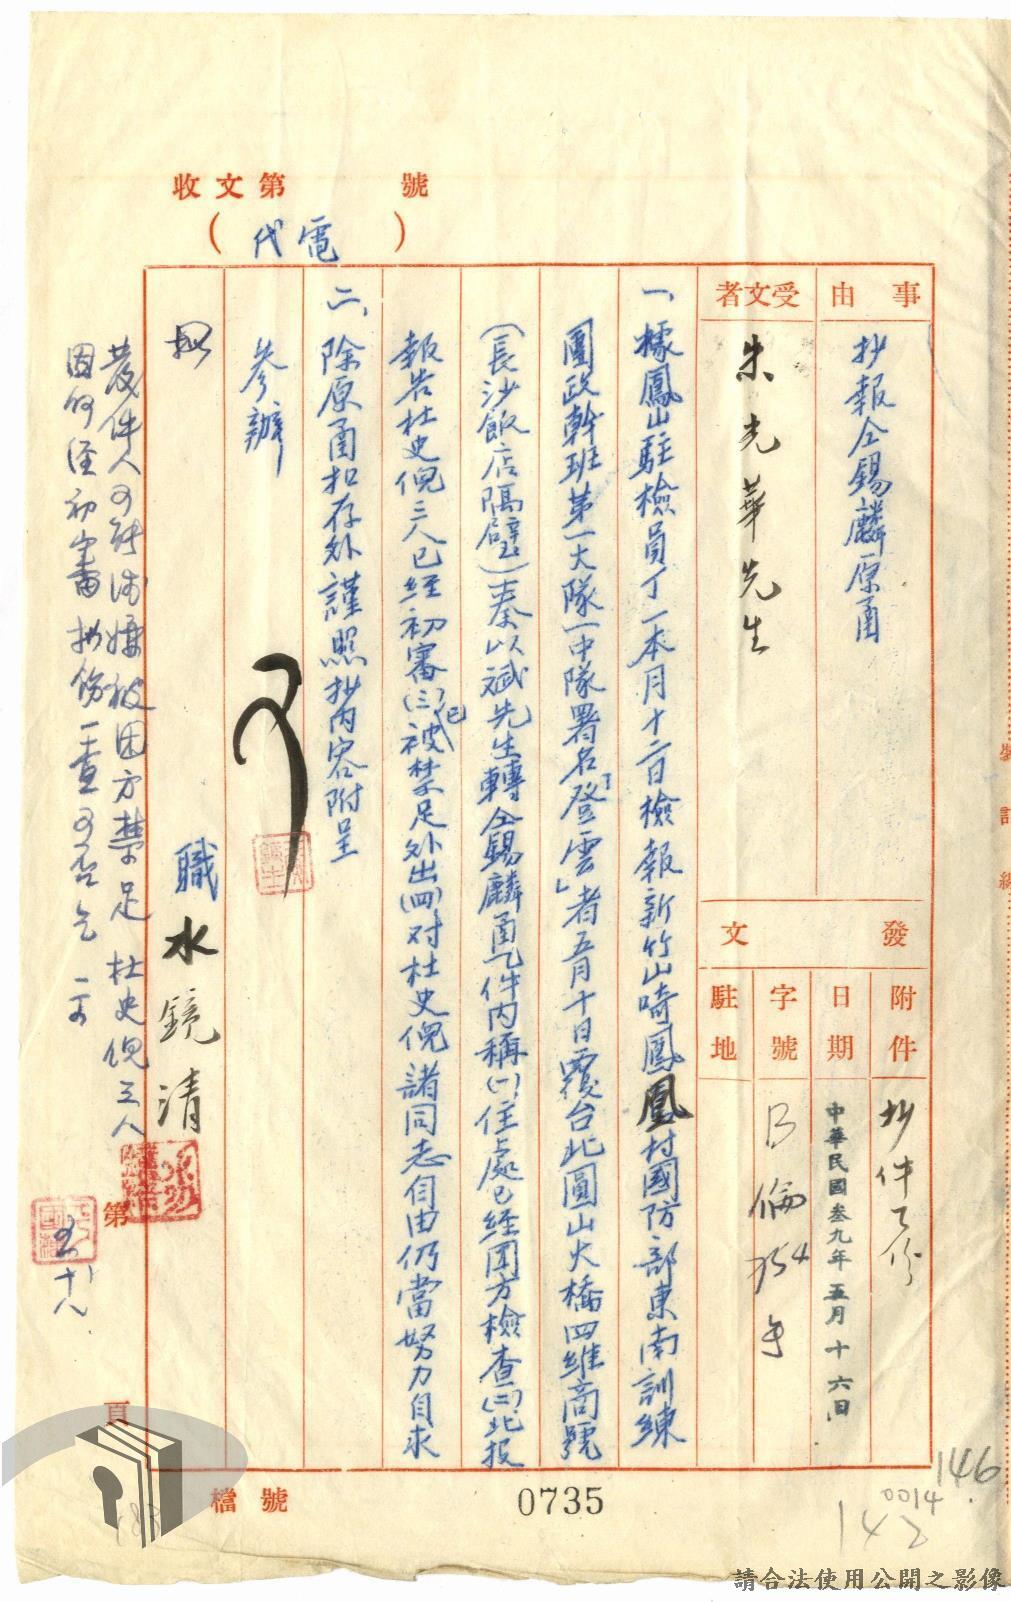 收文第 號
（代電）
事由
抄報仝錫麟原函
受文者
朱光華先生
發文
附件
抄件乙份
日期
中華民國叁九年五月十六日
字號
駐地
一、據鳳山駐檢員丁一本月十二日檢報新竹山崎鳳凰村國防部東南訓練
團政幹班第一大隊一中隊署名「登雲」者五月十日覆台北圓山大橋四維商號
（長沙飯店隔壁）秦以斌先生轉仝錫麟函乙件內稱(一)住處已經團方檢查(二)此投
報告杜史倪三人已經初審(三)已被禁足外出(四)对杜史倪諸同志自由仍當努力自求
二、除原函扣存外謹照抄內容附呈
參辦
職水鏡清
發件人可能涉嫌被团方禁足 杜史倪三人
因何經初審擬飭一查可否乞 示
十八
第
頁
檔號
0735
146
0014
142
裝
訂
線
請合法使用公開之影像